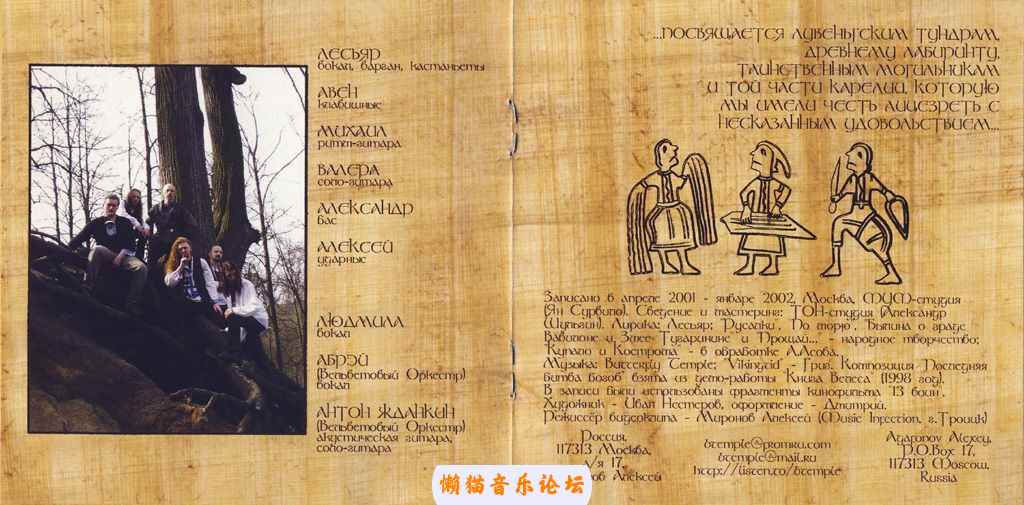 ЛЕСЬЯР
вокал, варган, кастаньеты
АВЕН
клавишные
МИХАИЛ
ритм-гитара
ВАЛЕРА
соло-гитара
АЛЕКСАНДР
бас
АЛЕКСЕЙ
ударные
ЛЮДМИЛА
вокал
АБРЭЙ
(Вельветовый Оркестр)
вокал
АНТОН ЖДАНКИН
(Вельветовый Оркестр)
акустическая гитара,
соло-гитара
...посвящается лувеньгским тундрам,
древнему лабиринту,
таинственным могильникам
и той части карелии, которую
мы имели честь лицезреть с
несказанным удовольствием...
Записано в апреле 2001 - январе 2002, Москва, МУМ-студия
(Ян Сурвило). Сведение и мастеринг: ТОН-студия (Александр
Лирика: Лесьяр; "Русалки", "По морю", "Былина о граде
Вавилоне и Змее Тугаринине" и "Прощай..." - народное творчество;
"Купало и Кострома" - в обработке А.Асова.
Музыка: Butterfly Temple; "Vikingtid" - Григ. Композиция "Последняя
битва богов" взята из демо-работы "Книга Велеса" (1998 год).
В записи были использованы фрагменты кинофильма "13 воин".
Художник - Иван Нестеров, оформление - Дмитрий.
Режиссёр видеоклипа - Миронов Алексей (Music Injection, г.Троицк)
Россия,
117313 Москва,
а/я 17,
ов Алексей
btemple@promru.com
btemple@mail.ru
http://listen.to/btemple
Agafonov Alexey,
P.O.Box 17,
117313 Moscow,
Russia
懒猫音乐论坛